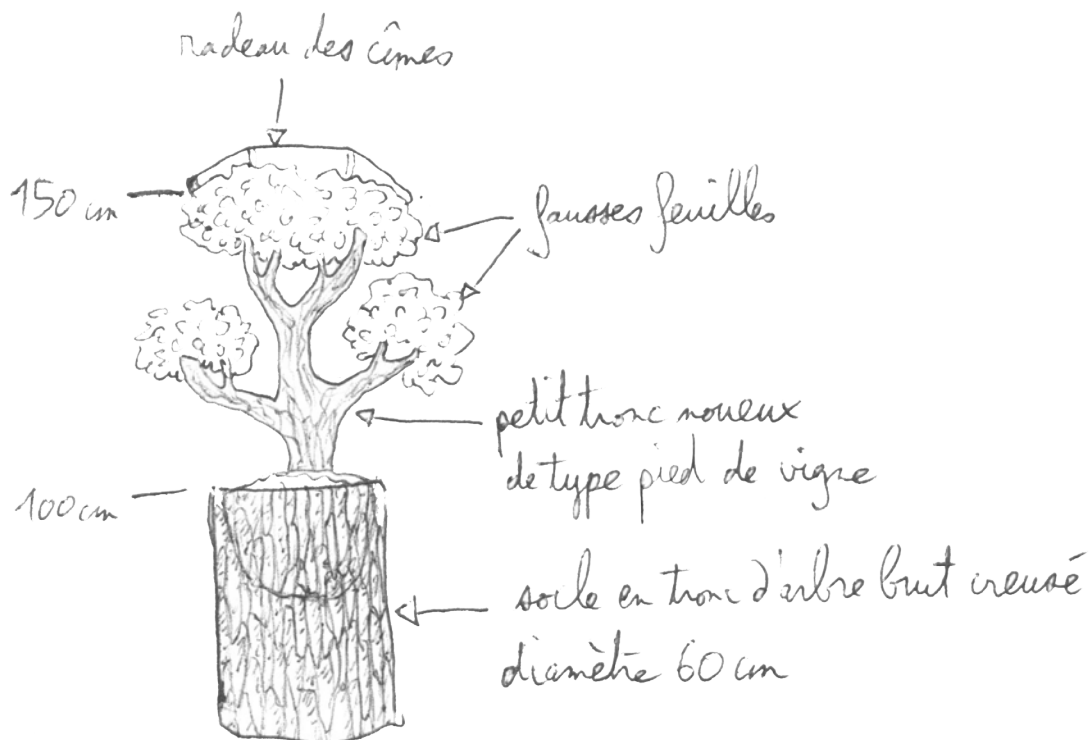 radeau des cîmes
150 cm
fausses feuilles
petit tronc noueux
de type pied de vigne
100 cm
socle en tronc d'arbre brut creusé
diamètre 60 cm